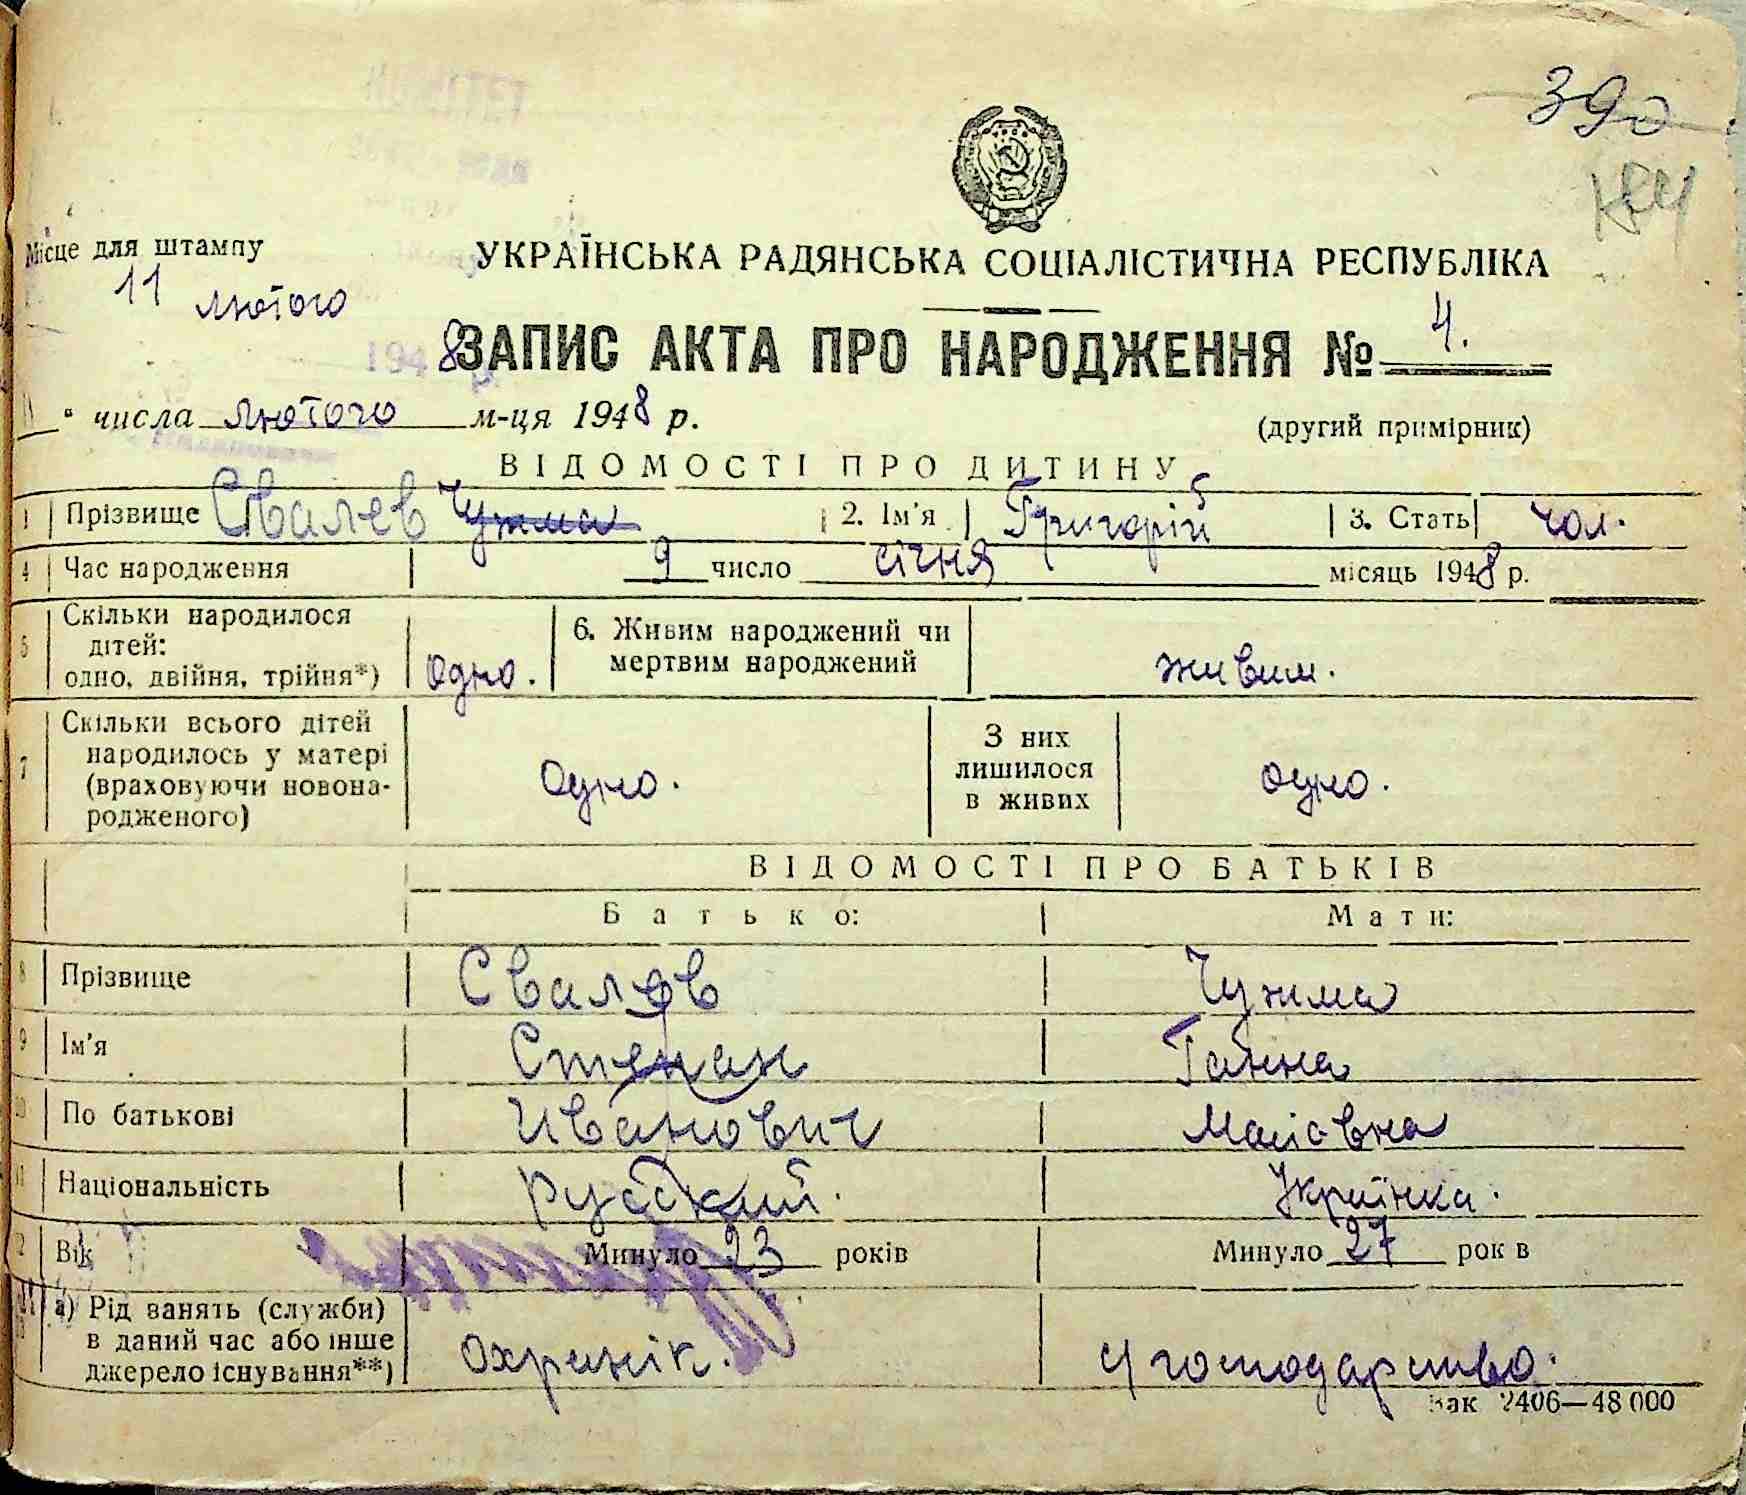 390
Місце для штампу
11 лютого
1948
УКРАЇНСЬКА РАДЯНСЬКА СОЦІАЛІСТИЧНА РЕСПУБЛІКА
ЗАПИС АКТА ПРО НАРОДЖЕННЯ № 4.
11 " числа лютого м-ця 1948 р.
(другий примірник)
ВІДОМОСТІ ПРО ДИТИНУ
1 Прізвище Свалев Чужма 2. Ім'я Григорій 3. Стать чол.
4 Час народження 9 число січня місяць 1948 р.
5 Скільки народилося
дітей:
одно, двійня, трійня*) одно. 6. Живим народжений чи
мертвим народжений живим.
7 Скільки всього дітей
народилось у матері
(враховуючи новона-
родженого) одно. З них
лишилося
в живих одно.
ВІДОМОСТІ ПРО БАТЬКІВ
Батько: Мати:
8 Прізвище Свалев Чужма
9 Ім'я Степан Ганна
10 По батькові Иванович
11 Національність русский. Українка.
12 Вік Минуло 23 років Минуло 27 рок в
13 а) Рід занять (служби)
в даний час або інше
джерело існування**) охранік. У господарство.
Зак 2406—48 000